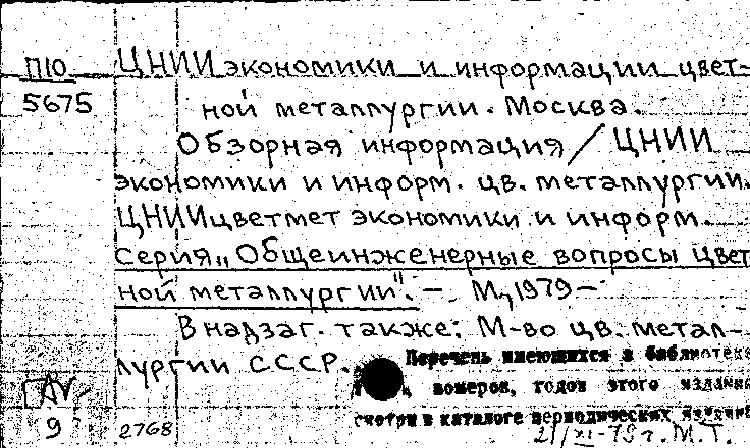 П10
5675
ЦНИИ экономики и информации цвет-
ной металлургии. Москва.
Обзорная информация / ЦНИИ
экономики и информ. цв. металлургии.
ЦНИИцветмет экономики и информ.
Серия „Общеинженерные вопросы цвет
ной металлургии". — М., 1979 —
В надзаг. также: М-во цв. метал-
лургии СССР.
Перечень имеющихся в библиотеке
номеров, годов этого издания
смотри в каталоге периодических изданий
9
2768
М.Т.